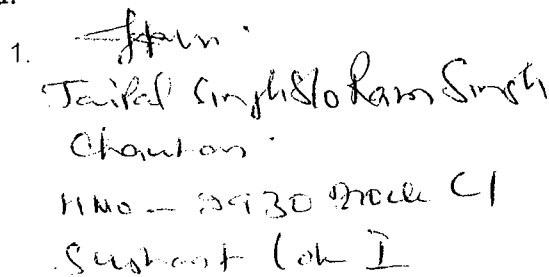 1.
Jaipal Singh S/o Ram Singh
Chauhan.
H NO - 2930 Block C1
Sushant Lok I